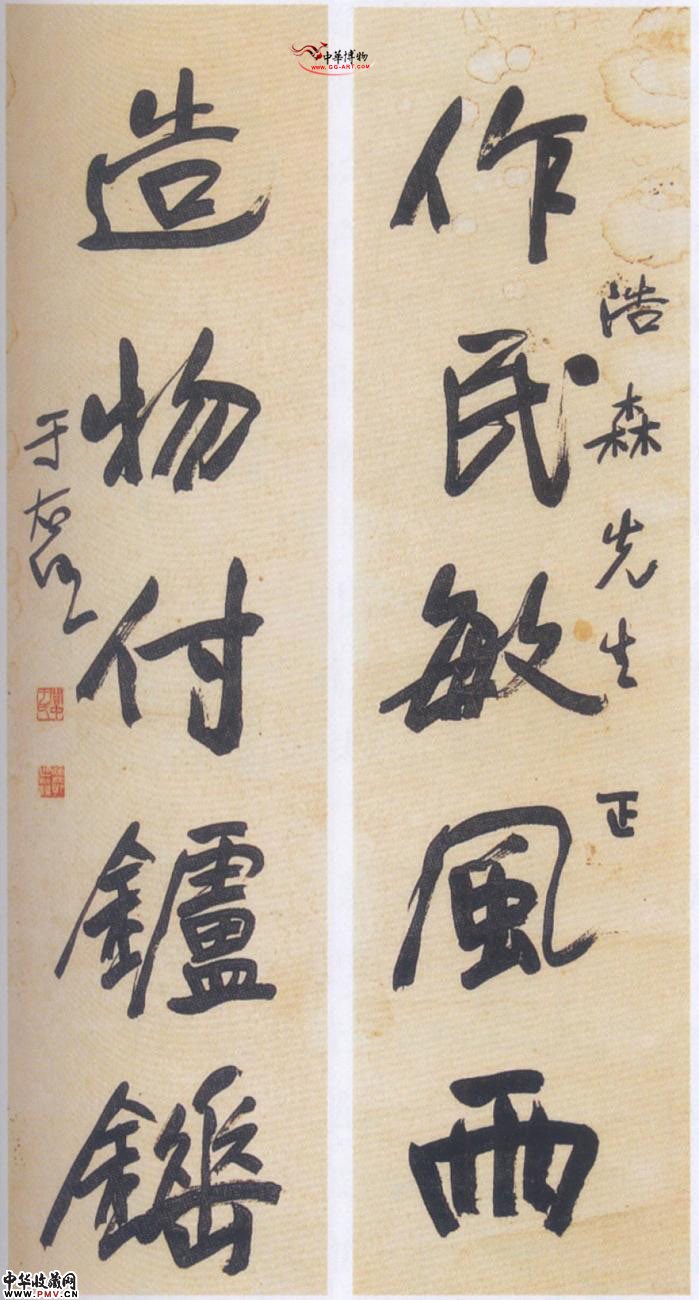 中華博物
WWW.GG-ART.COM
浩森先生正
作民敏風雨
造物付鑪錘
于右任
中华收藏网
WWW.PMV.CN